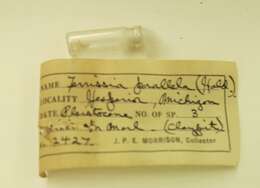 NAME Ferrissia parallela (Hald.)
LOCALITY Michigan
DATE Pleistocene NO. OF SP. 3
in Marl. (Claypit)
No. 2427 J. P. E. MORRISON, Collector